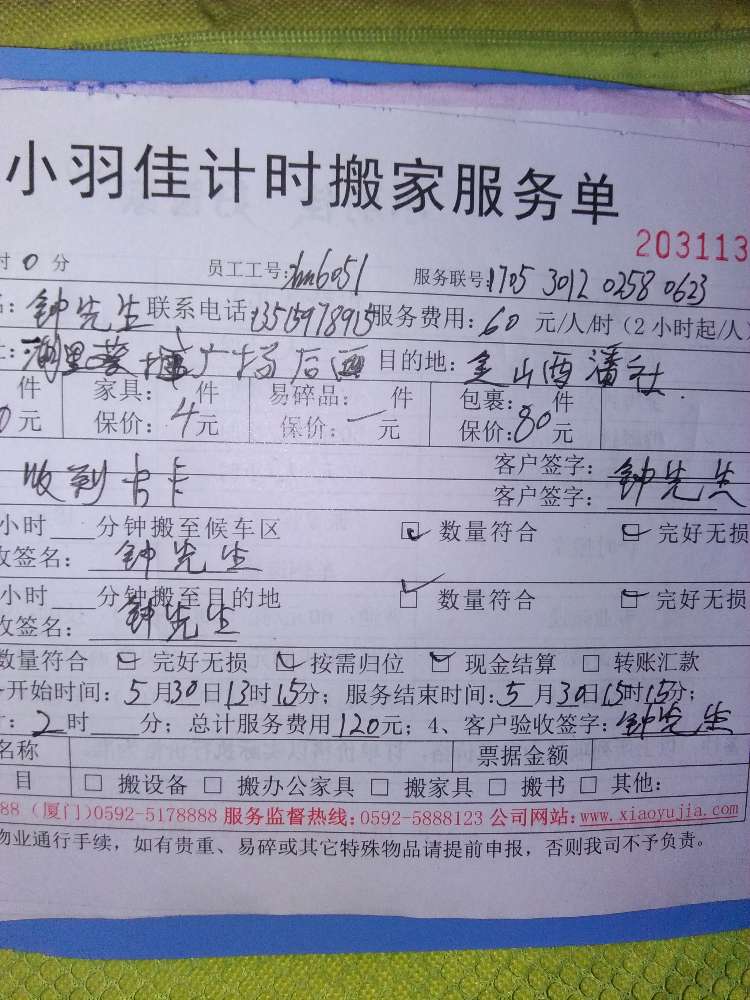 小羽佳计时搬家服务单
203113
时0分 员工工号: 服务联号:1705 3012 0258 0623
钟先生 联系电话:13515978915 服务费用:60元/人/时(2小时起/人
湖里 广场后面 目的地:金山西潘社
件 家具: 件 易碎品: 件 包裹: 件
0元 保价:4元 保价:一元 保价:80元
收到 客户签字:钟先生
客户签字:
小时 分钟搬至候车区 ☑ 数量符合 ☑ 完好无损
收签名:钟先生
小时 分钟搬至目的地 ☑ 数量符合 ☑ 完好无损
收签名:钟先生
数量符合 ☑ 完好无损 ☑ 按需归位 ☑ 现金结算 □ 转账汇款
开始时间:5月30日13时15分;服务结束时间:5月30日15时15分;
2时 分;总计服务费用120元;4、客户验收签字:钟先生
名称 票据金额
目 □ 搬设备 □ 搬办公家具 □ 搬家具 □ 搬书 □ 其他:
88(厦门)0592-5178888 服务监督热线:0592-5888123 公司网站:www.xiaoyujia.com
物业通行手续,如有贵重、易碎或其它特殊物品请提前申报,否则我司不予负责。